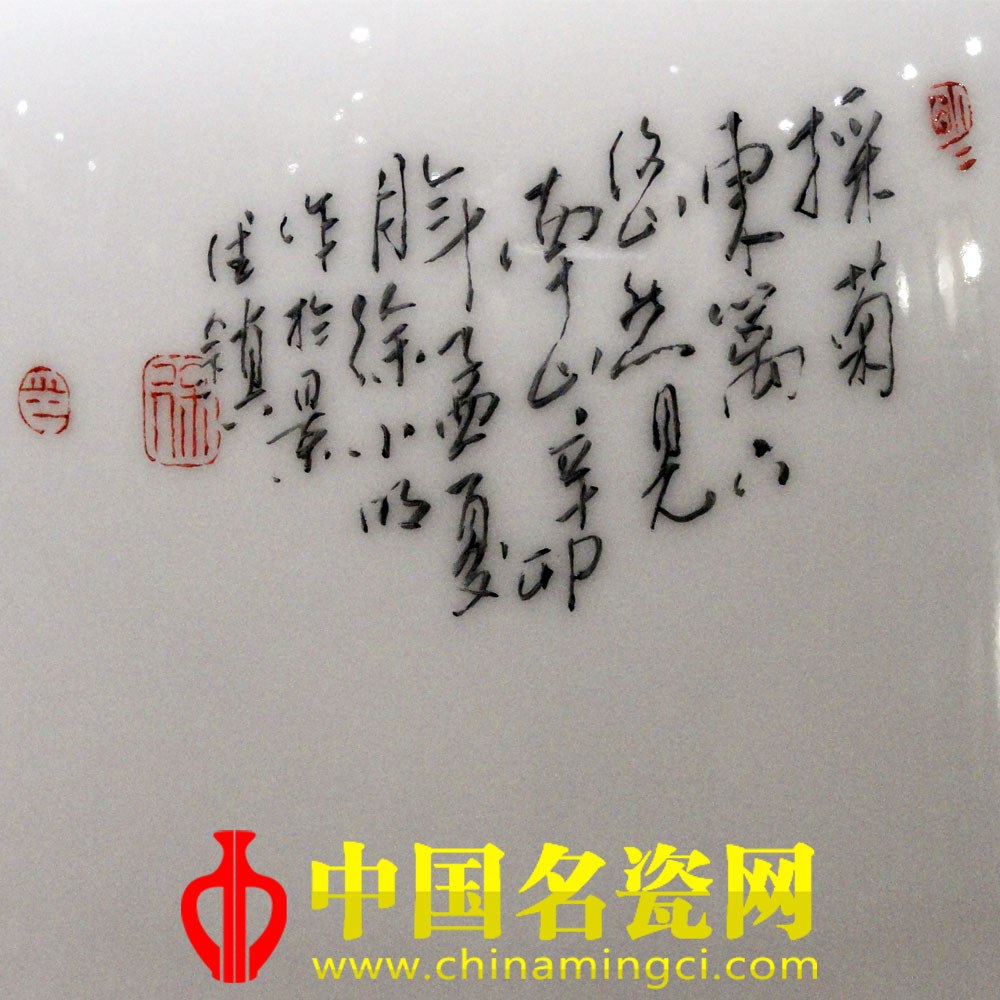 採菊
東篱下
悠然見
南山辛卯
年孟夏
月徐小明
作於景
德鎮
徐
印
中国名瓷网
www.chinamingci.com